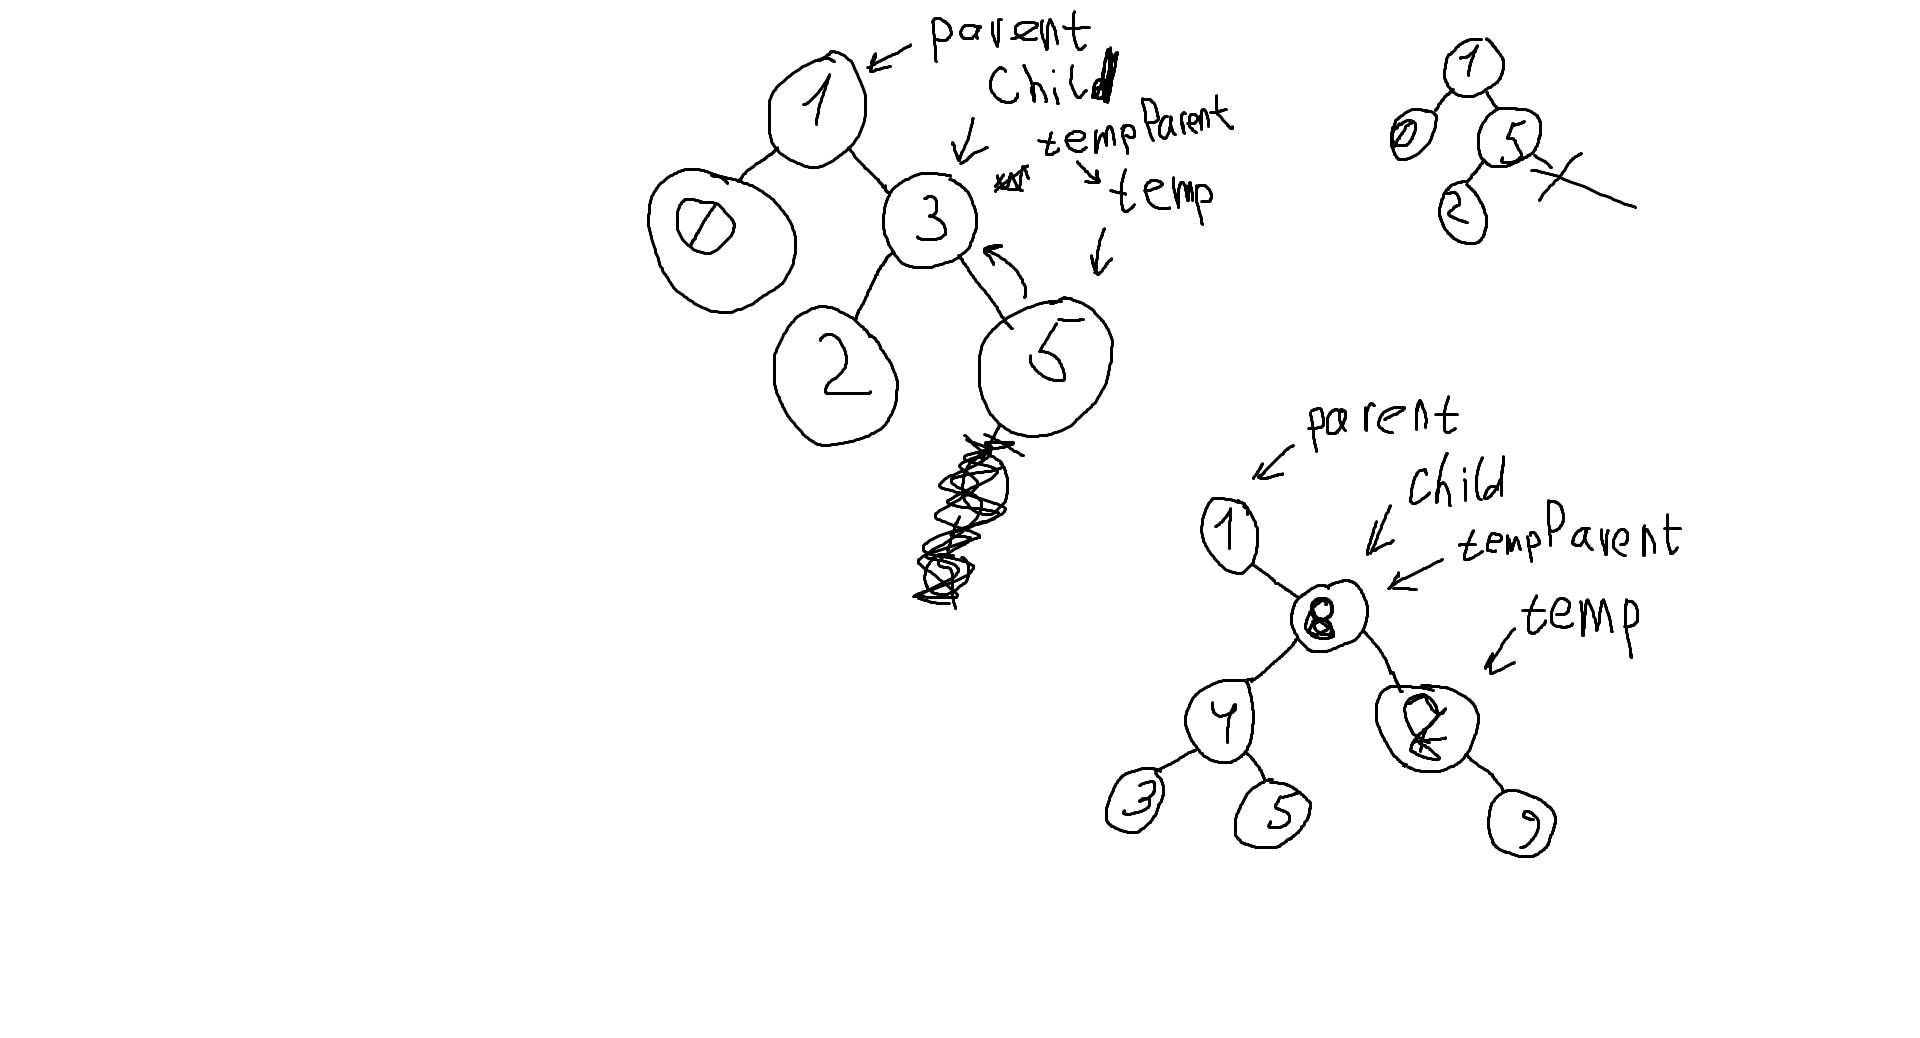 parent
Child
tempParent
temp
1
0
3
2
5
1
0
5
2
parent
child
tempParent
temp
1
8
4
3
5
9